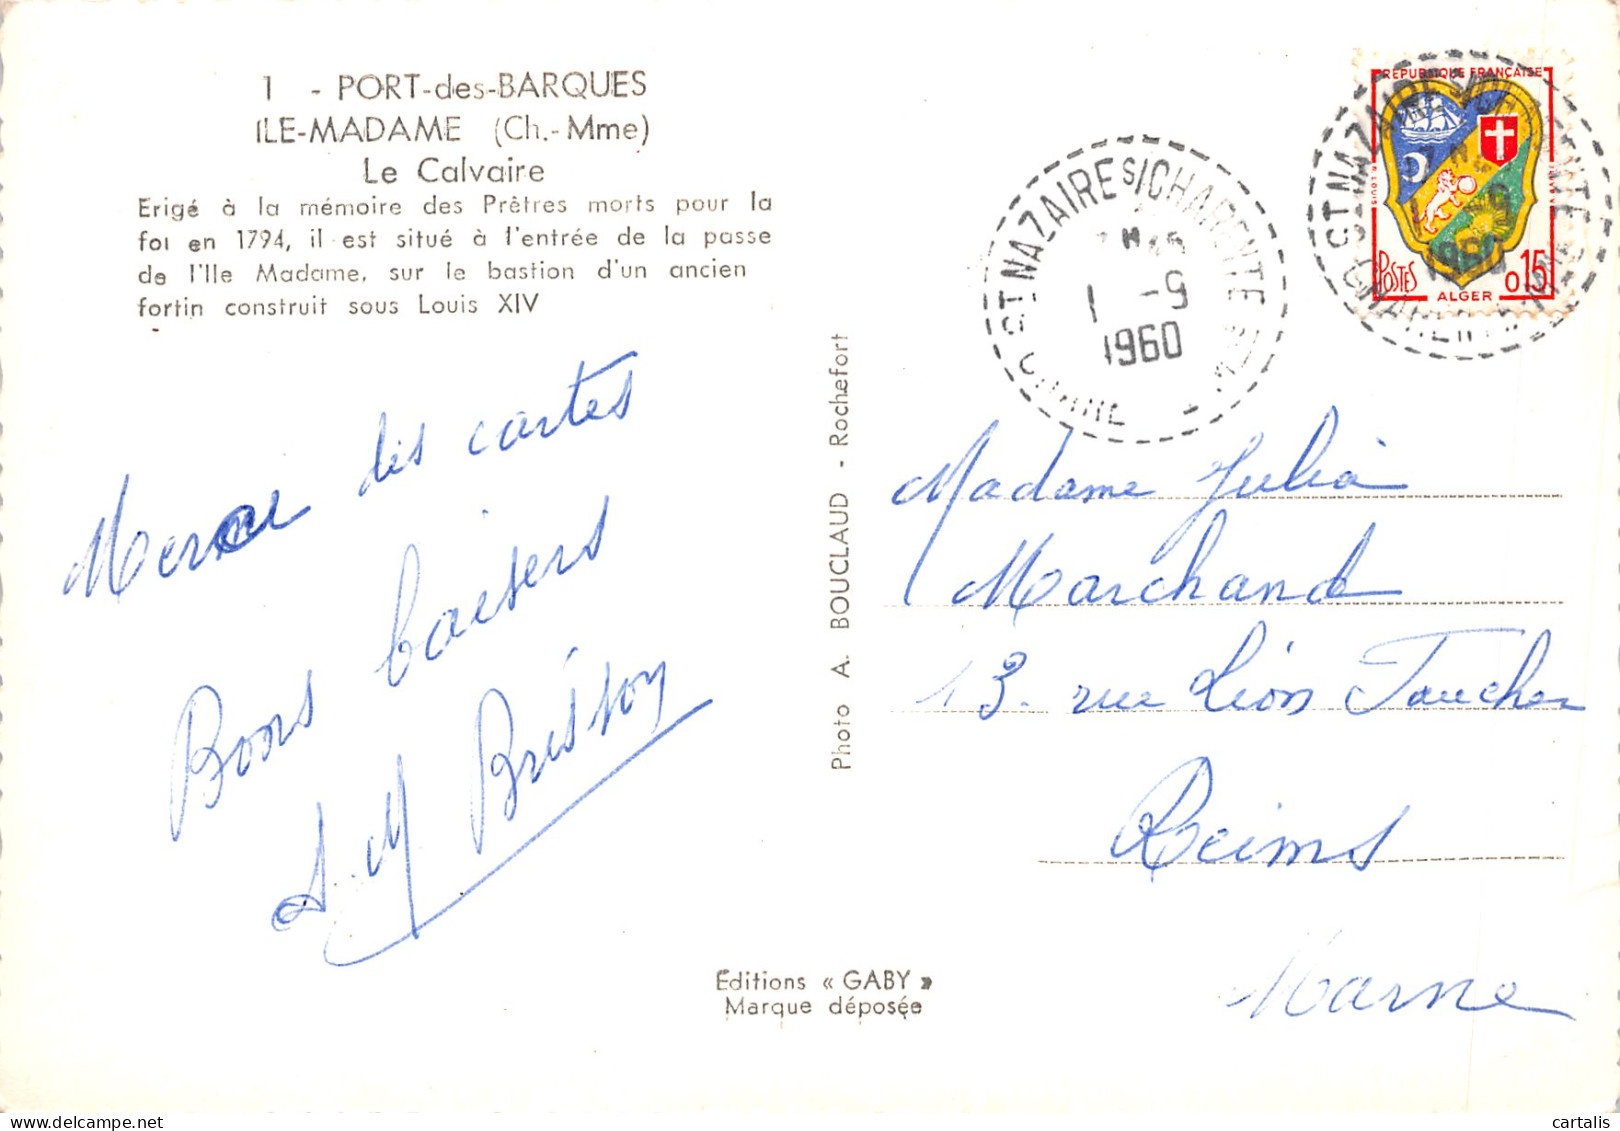 1 - PORT-des-BARQUES
ILE-MADAME (Ch.-Mme)
Le Calvaire
Erigé à la mémoire des Prêtres morts pour la
foi en 1794, il est situé à l'entrée de la passe
de l'Ile Madame, sur le bastion d'un ancien
fortin construit sous Louis XIV
Merci des cartes
Bons baisers
Brisson
Photo A. BOUCLAUD - Rochefort
Editions « GABY »
Marque déposée
ST NAZAIRE S/CHARENTE
1 -9
1960
REPUBLIQUE FRANÇAISE
POSTES
0,15
ALGER
ST NAZAIRE S/CHARENTE
Madame Julia
Marchand
13. rue Léon Faucher
Reims
Marne
cartalis